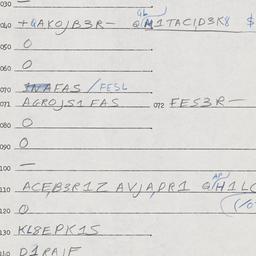 030 —
040 +4AKOJB3R— @H1TACID3K8 $
050 O
060 O
070 FAS /FESL
071 AGROJS1FAS 072 FES3R—
080 O
090 O
100 —
110 ACE,B3R1Z AVJA,DR1 @H1LC
120 O
130 KL8EPK1S